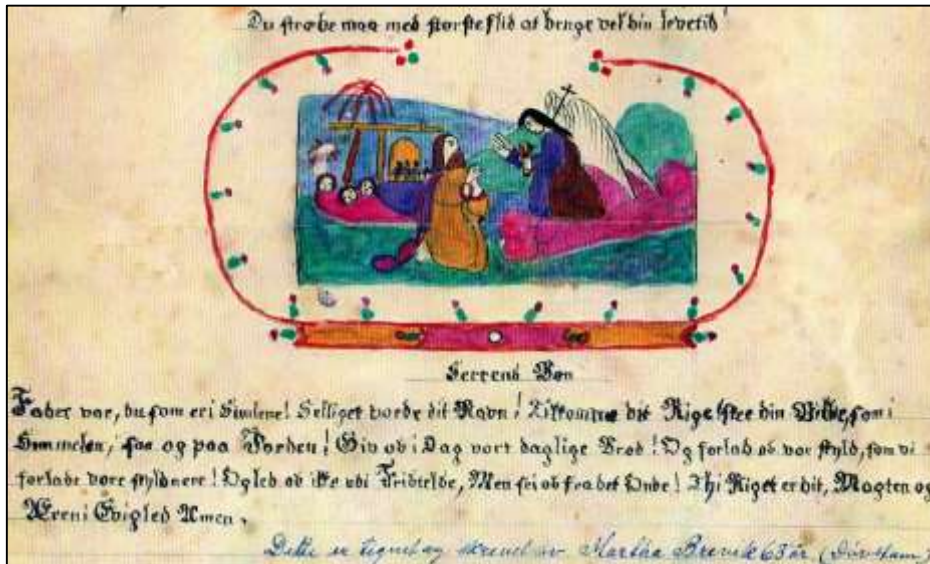 Du stræbe maa med største flid at bruge vel din levetid!
Herrens Bøn
Fader vor, du som er i Himlene! Helliget vorde dit Navn! Tilkomme dit Rige! skee din Villie, som i
Himmelen, saa og paa Jorden! Giv os i Dag vort daglige Brød! Og forlad os vor skyld, som vi
forlade vore skyldnere! Og led os ikke udi Fristelse, Men fri os fra det Onde! Thi Riget er dit, Magten og
Æren i Evighed Amen.
Dette er tegnet og skrevet av Martha Brevik 65 år (Døvstum)